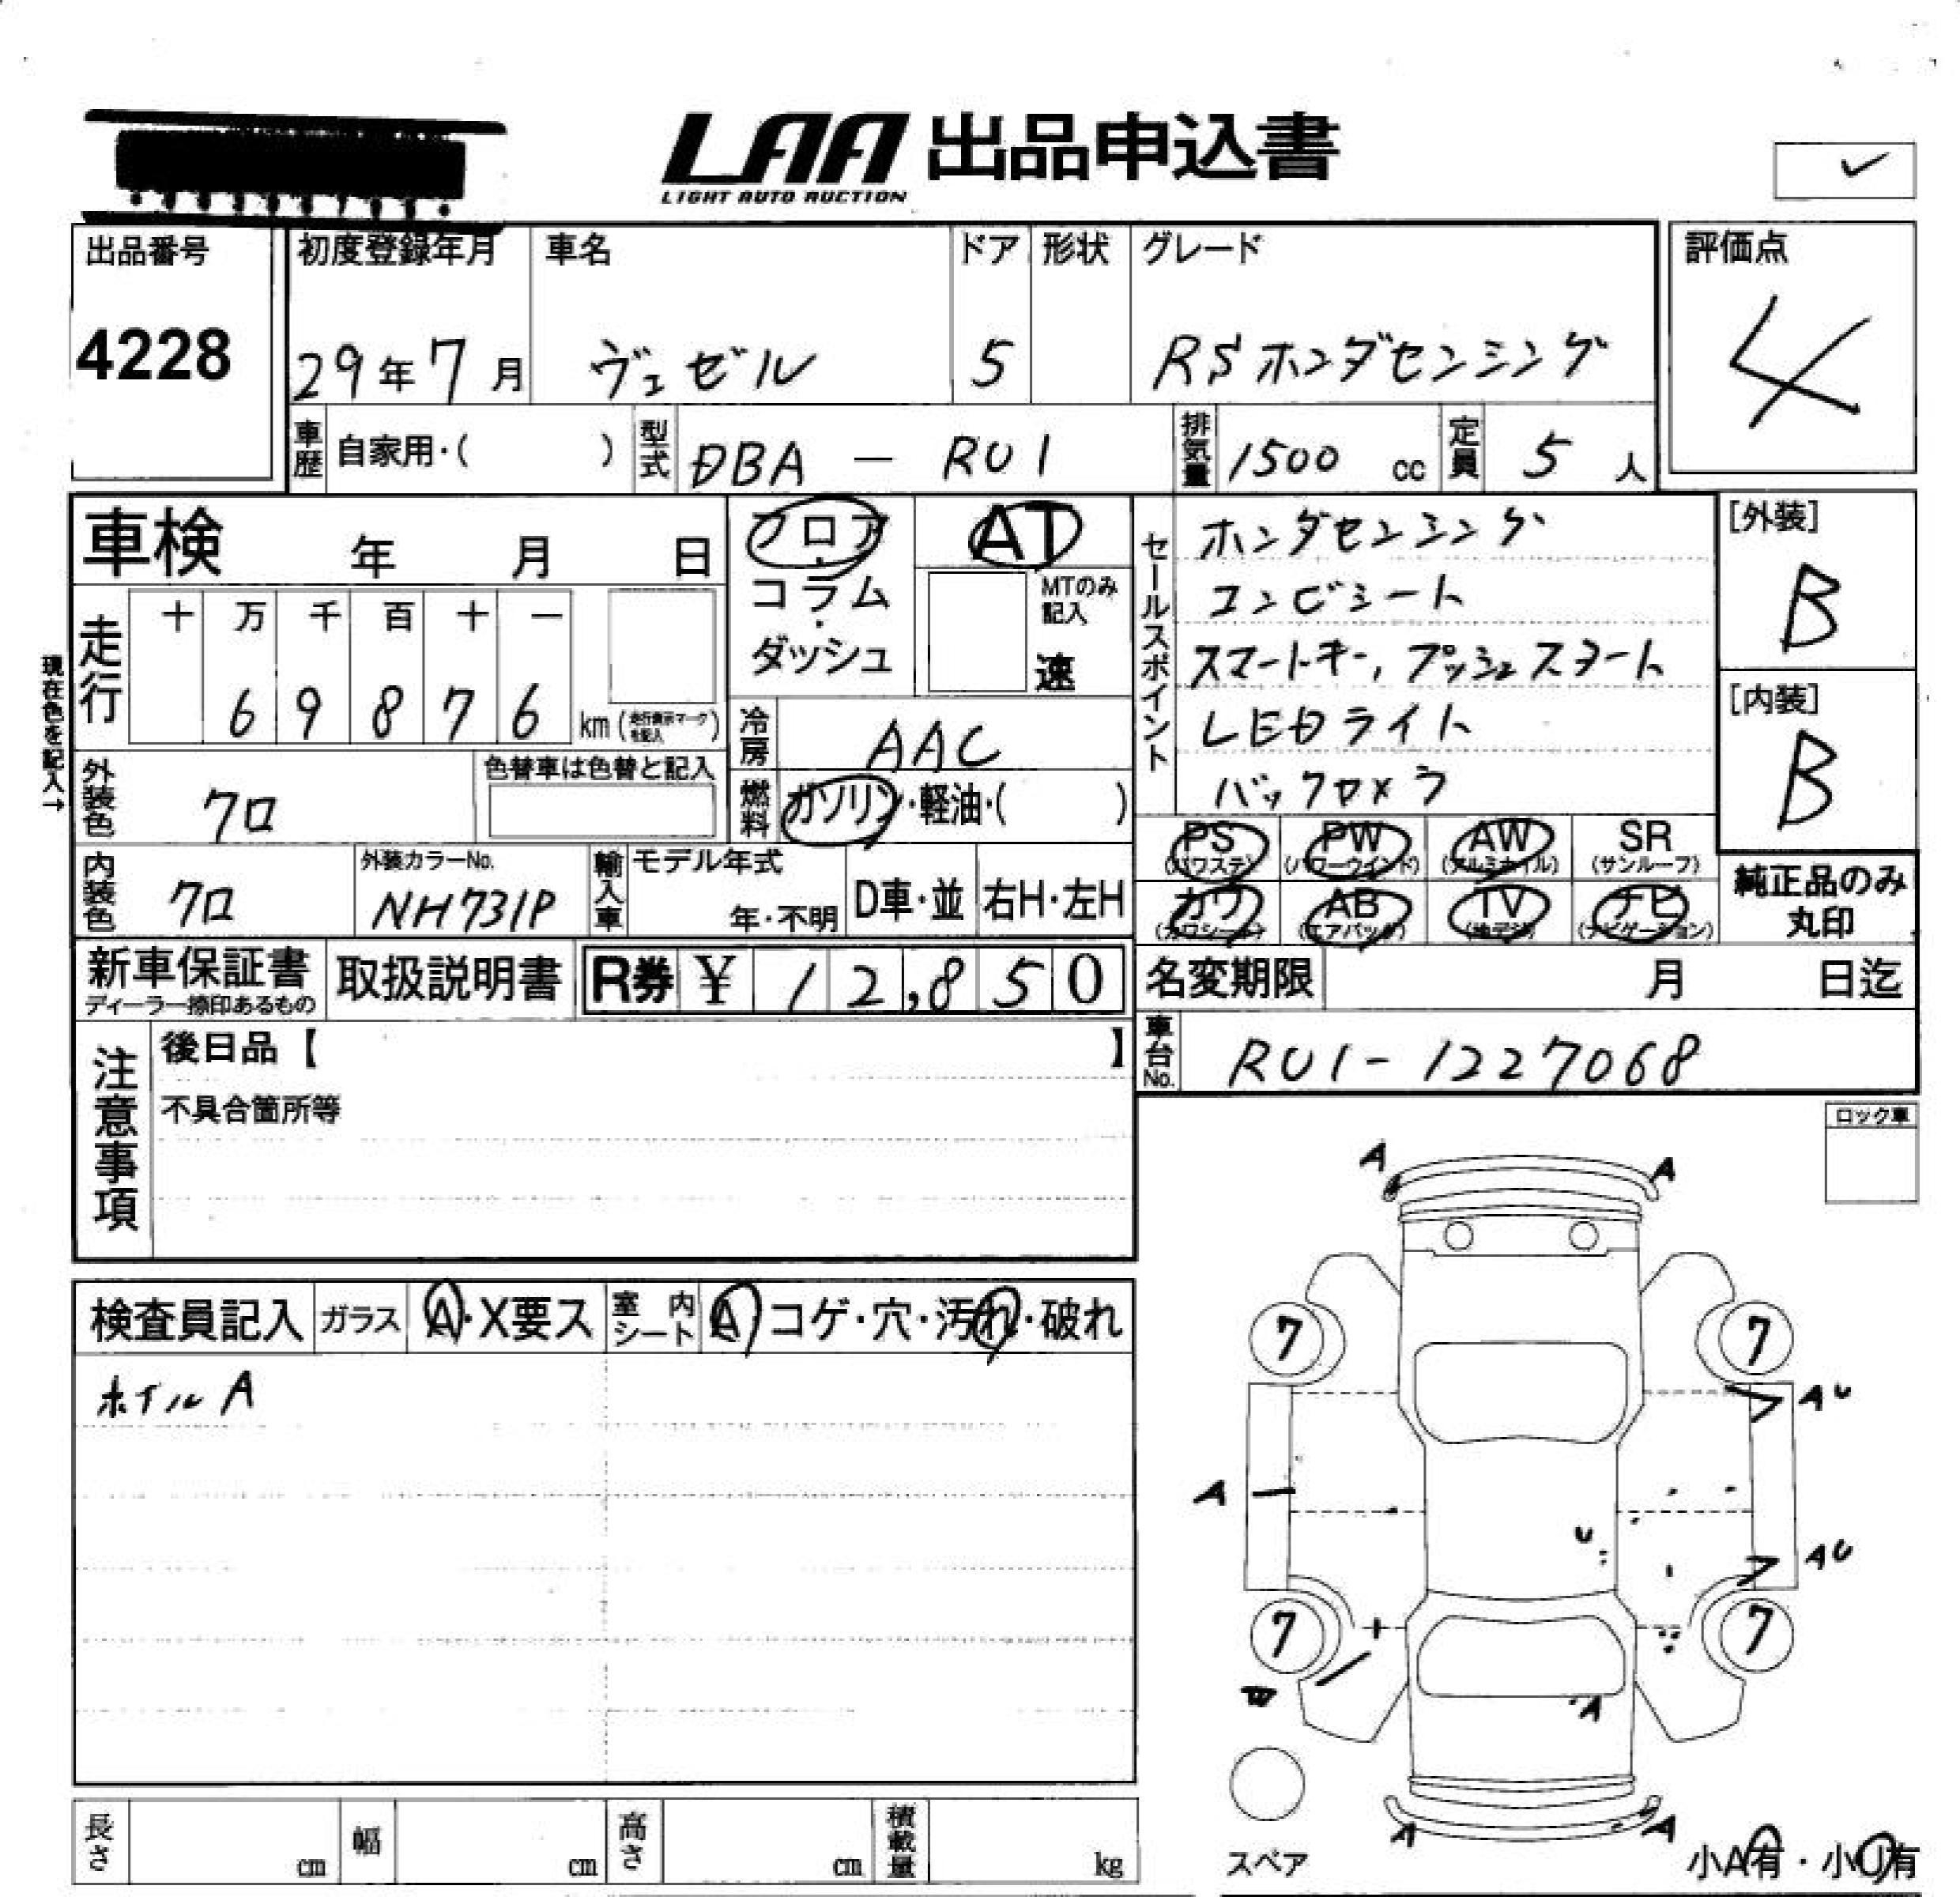 LAA 出品申込書
LIGHT AUTO AUCTION
出品番号 初度登録年月 車名 ドア 形状 グレード 評価点
4228 29年 7月 ヴェゼル 5 RSホンダセンシング 4
車歴 自家用・( ) 型式 DBA - RU1 排気量 1500 cc 定員 5 人
車検 年 月 日 フロア AT セールスポイント ホンダセンシング [外装]
コラム MTのみ記入 コンビシート B
走行 十 万 千 百 十 一 ・ダッシュ 速 スマートキー, プッシュスタート
現在色を記入→ 6 9 8 7 6 km (走行表示マークを記入) 冷房 AAC LEDライト [内装]
外装色 クロ 色替車は色替と記入 燃料 ガソリン・軽油・( ) バックカメラ B
PS (パワステ) PW (パワーウインド) AW (アルミホイル) SR (サンルーフ)
内装色 クロ 外装カラーNo. NH731P 輸入車 モデル年式 年・不明 D車・並 右H・左H カワ (カワシート) AB (エアバック) TV (地デジ) ナビ (ナビゲーション) 純正品のみ丸印
新車保証書 取扱説明書 R券 ¥ 12,850 名変期限 月 日迄
ディーラー捺印あるもの
注意事項 後日品【 】 車台No. RU1-1227068
不具合箇所等 ロック車
A A
検査員記入 ガラス A・X要ス 室内シート A コゲ・穴・汚れ・破れ
ホイルA
7 7
AU
A
U
AU
7 7
W
A
A A
スペア
長さ cm 幅 cm 高さ cm 積載量 kg 小A有・小U有